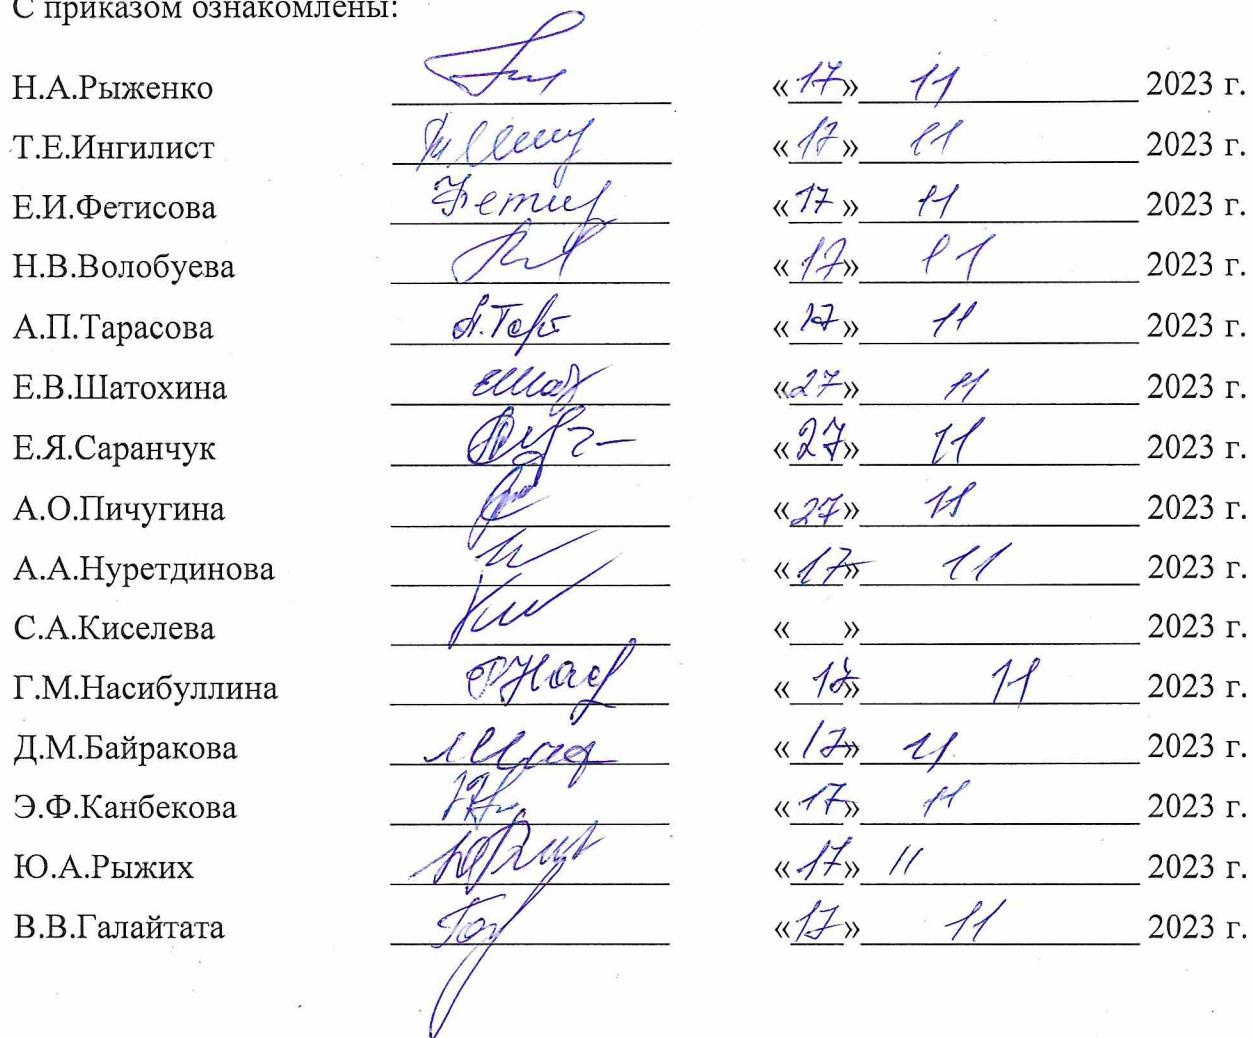 С приказом ознакомлены:
Н.А.Рыженко «17» 11 2023 г.
Т.Е.Ингилист «17» 11 2023 г.
Е.И.Фетисова «17» 11 2023 г.
Н.В.Волобуева «17» 11 2023 г.
А.П.Тарасова «17» 11 2023 г.
Е.В.Шатохина «27» 11 2023 г.
Е.Я.Саранчук «27» 11 2023 г.
А.О.Пичугина «27» 11 2023 г.
А.А.Нуретдинова «17» 11 2023 г.
С.А.Киселева « » 2023 г.
Г.М.Насибуллина «17» 11 2023 г.
Д.М.Байракова «17» 11 2023 г.
Э.Ф.Канбекова «17» 11 2023 г.
Ю.А.Рыжих «17» 11 2023 г.
В.В.Галайтата «17» 11 2023 г.